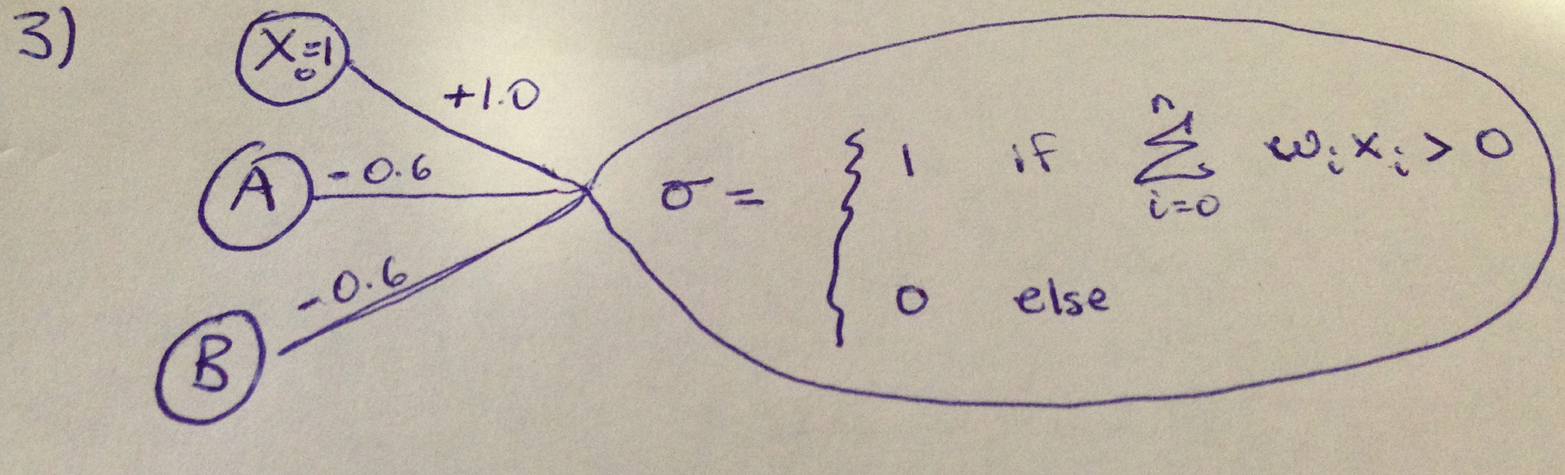 3)
X₀=1
+1.0
A
-0.6
B
-0.6
σ = { 1 if n Σ i=0 wᵢ xᵢ > 0
0 else